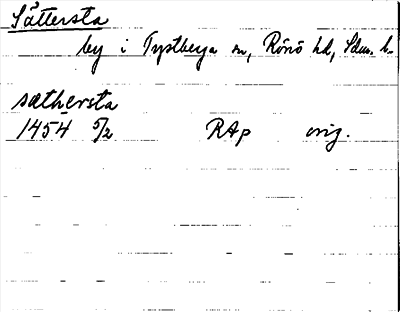 Sättersta
by i Tystberga sn, Rönö hd, Sdm. l.
sæthersta
1454 5/2 RAp orig.